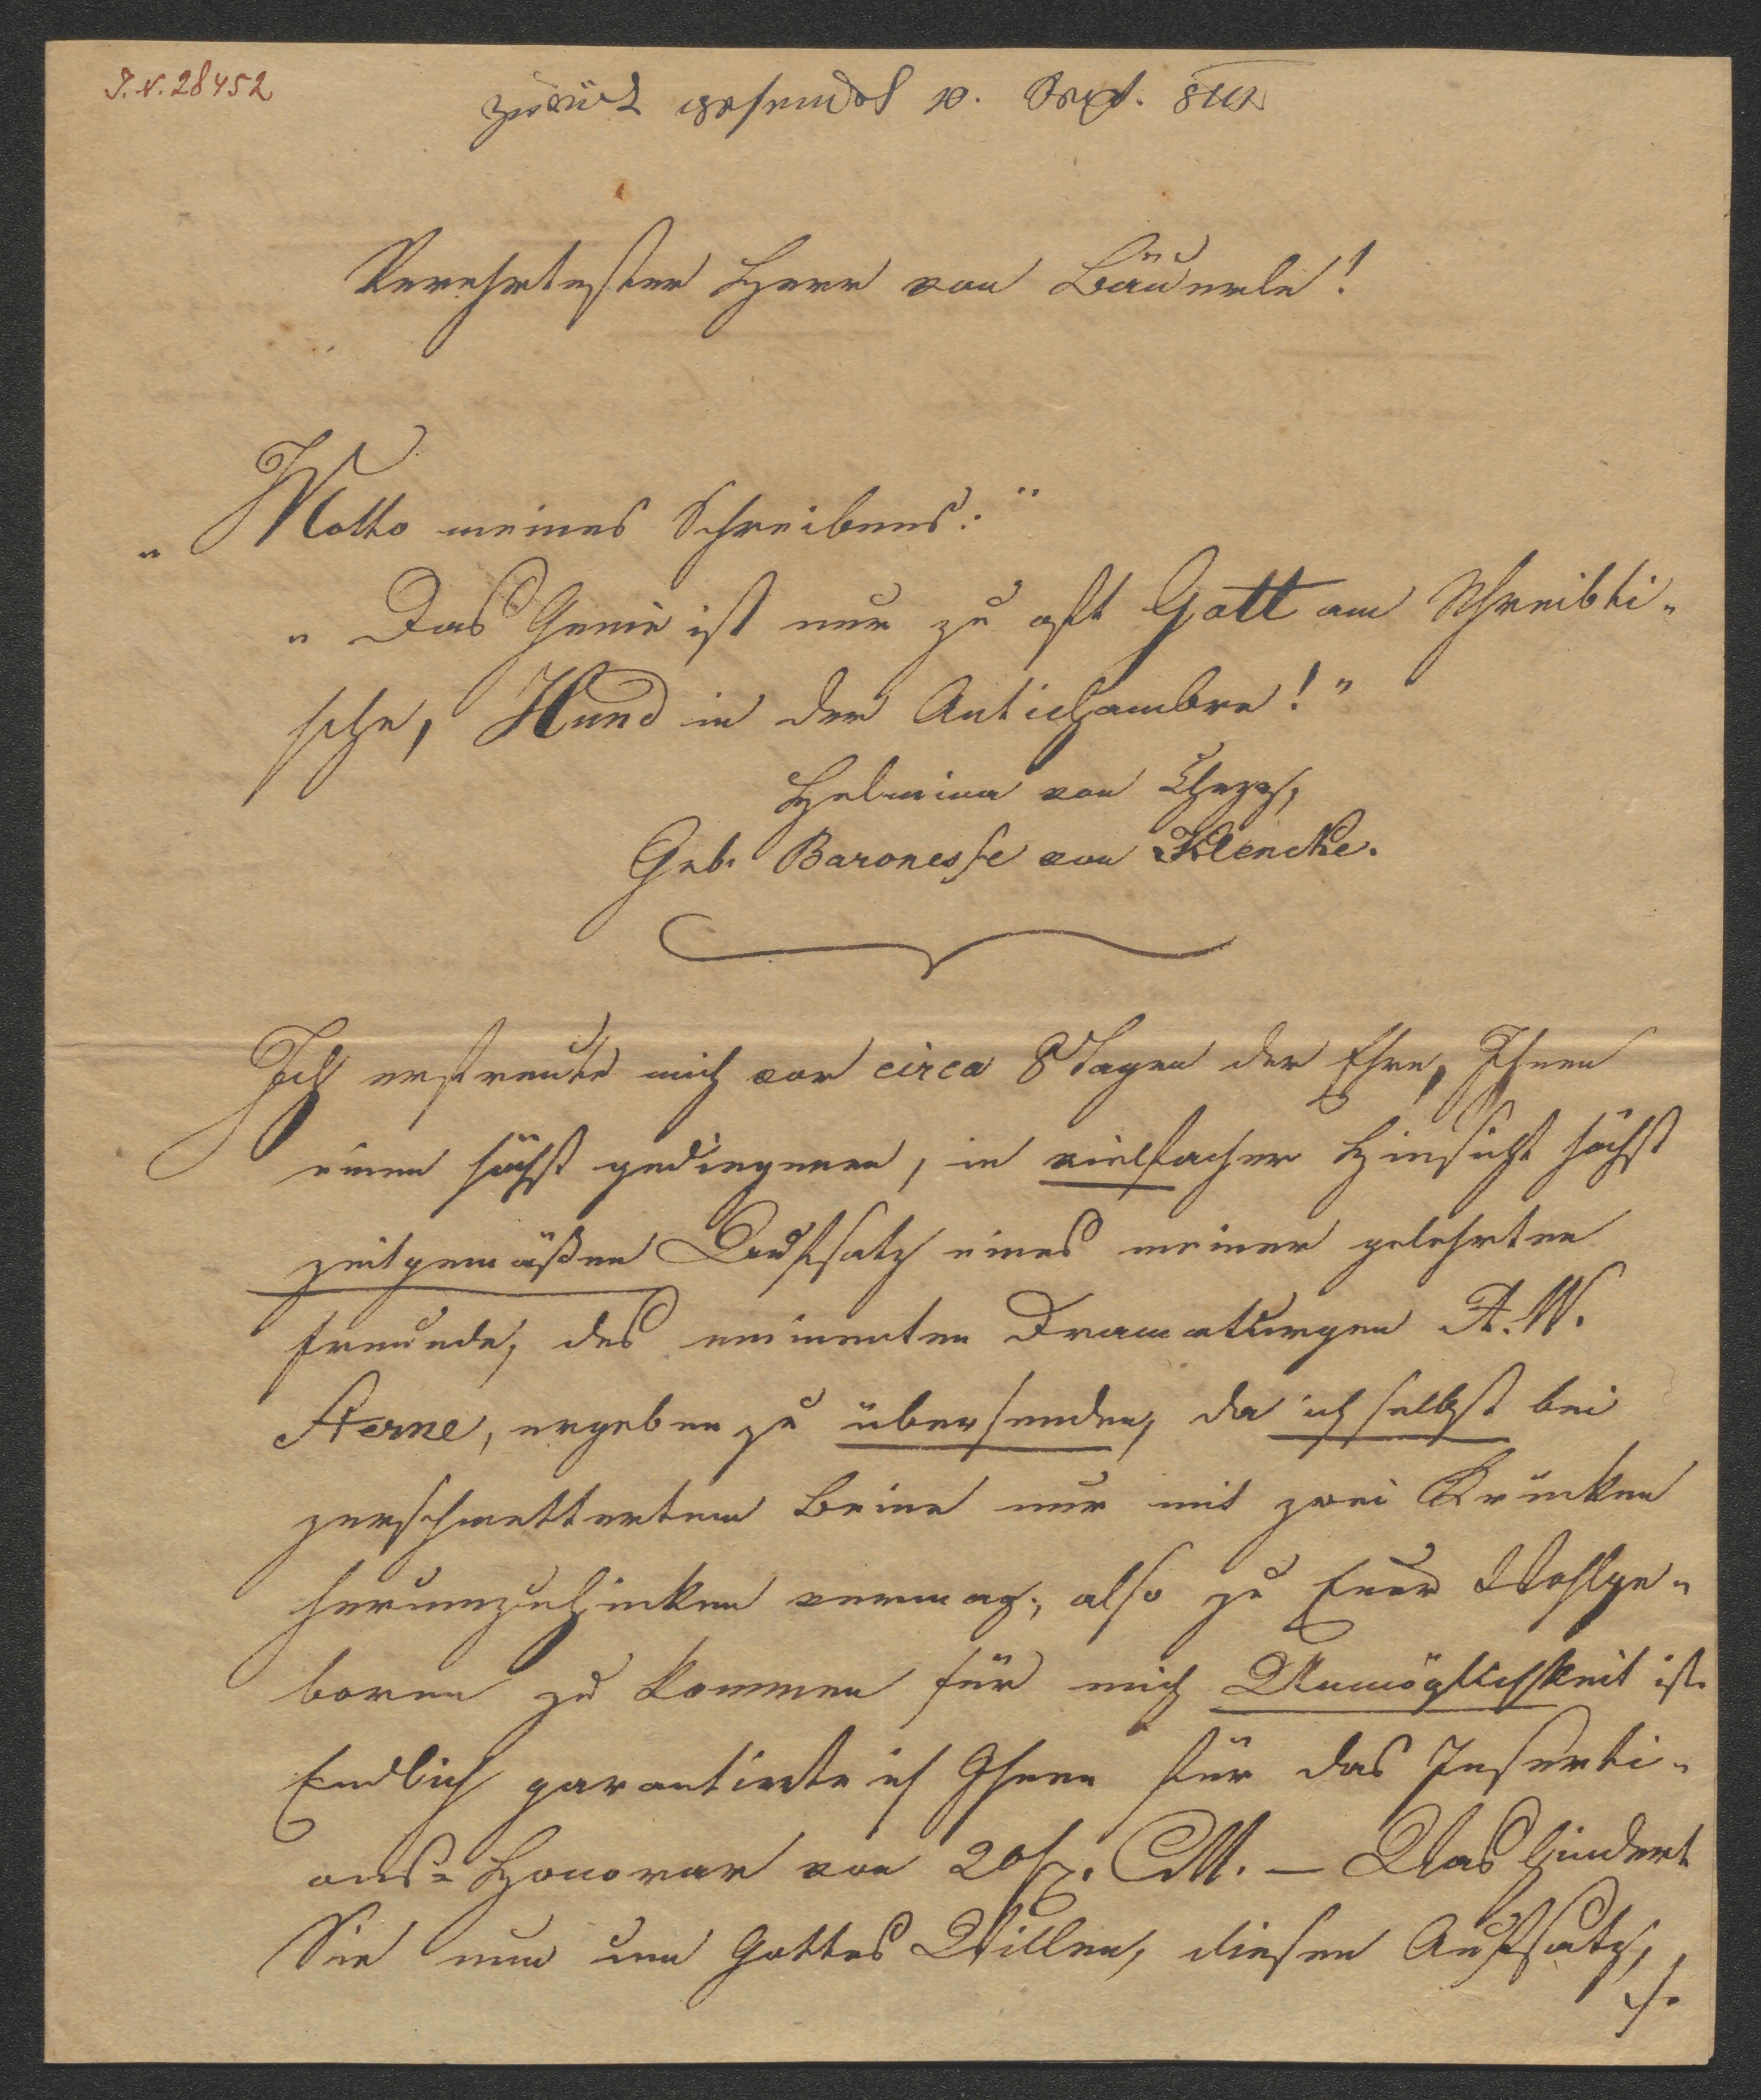 I. N. 28452
zurück gesendet 10. Sept.
Verehrtester Herr von Bäuerle!
„Motto meines Schreibens:"
„Das Genie ist nur zu oft Gott am Schreibti-
sche, Hund in der Antichambre!"
Helmina von Chezy,
Geb. Baronesse von Klencke.
Ich erfreute mich vor circa 8 Tagen der Ehre, Ihnen
einen höchst gediegenen, in vielfacher Hinsicht höchst
zeitgemäßen Aufsatz eines meiner gelehrten
Freunde, des eminenten Dramaturgen A. W.
Sterne, ergeben zu übersenden, da ich selbst bei
zerschmettertem Beine nur mit zwei Krücken
herumzuhinken vermag, also zu Euer Wohlge-
boren zu kommen für mich Unmöglichkeit ist.
Endlich garantirte ich Ihnen für das Inserti-
ons-Honorar von 20 f. CM. – Was hindert
Sie nun um Gottes Willen, diesen Aufsatz,
./.